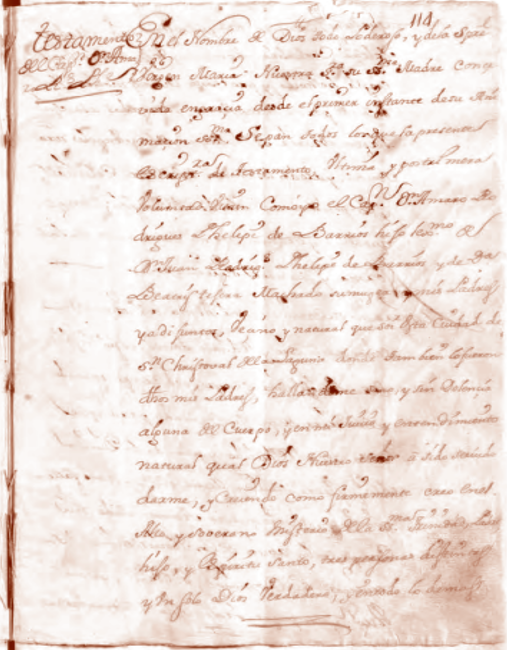 114
testamento En el Nombre de Dios todo Poderoso, y de la
del Capn Dn Amo Virgen Maria Nuestra Sra su Madre conce
vida en gracia desde el primer instante de su Ani
macion Sepan todos los que la presente
de testamento Vltima y postrimera
Voluntad Vieren Como yo el Capn Dn Amaro Ro
drigues Phelipe de Barrios hijo legmo de
Dn Juan Rodrigs Phelipe de Barrios y de Da
Beatris Machado su muger mis Padres
ya difuntos, Vecino y natural que soi desta Ciudad de
Sn Christoval de la Laguna donde tambien lo fueron
dhos mis Padres, hallandome sano, y sin Dolencia
alguna del Cuerpo, y en mi Juicio y entendimiento
natural qual Dios Nuestro Señor a sido servido
darme, y Creiendo como firmemente creo en el
Alto y Soverano Misterio de la Sma Trinidad, Padre
hijo, y Espiritu Santo, tres personas distintas
y Vn solo Dios Verdadero, y en todo lo demas